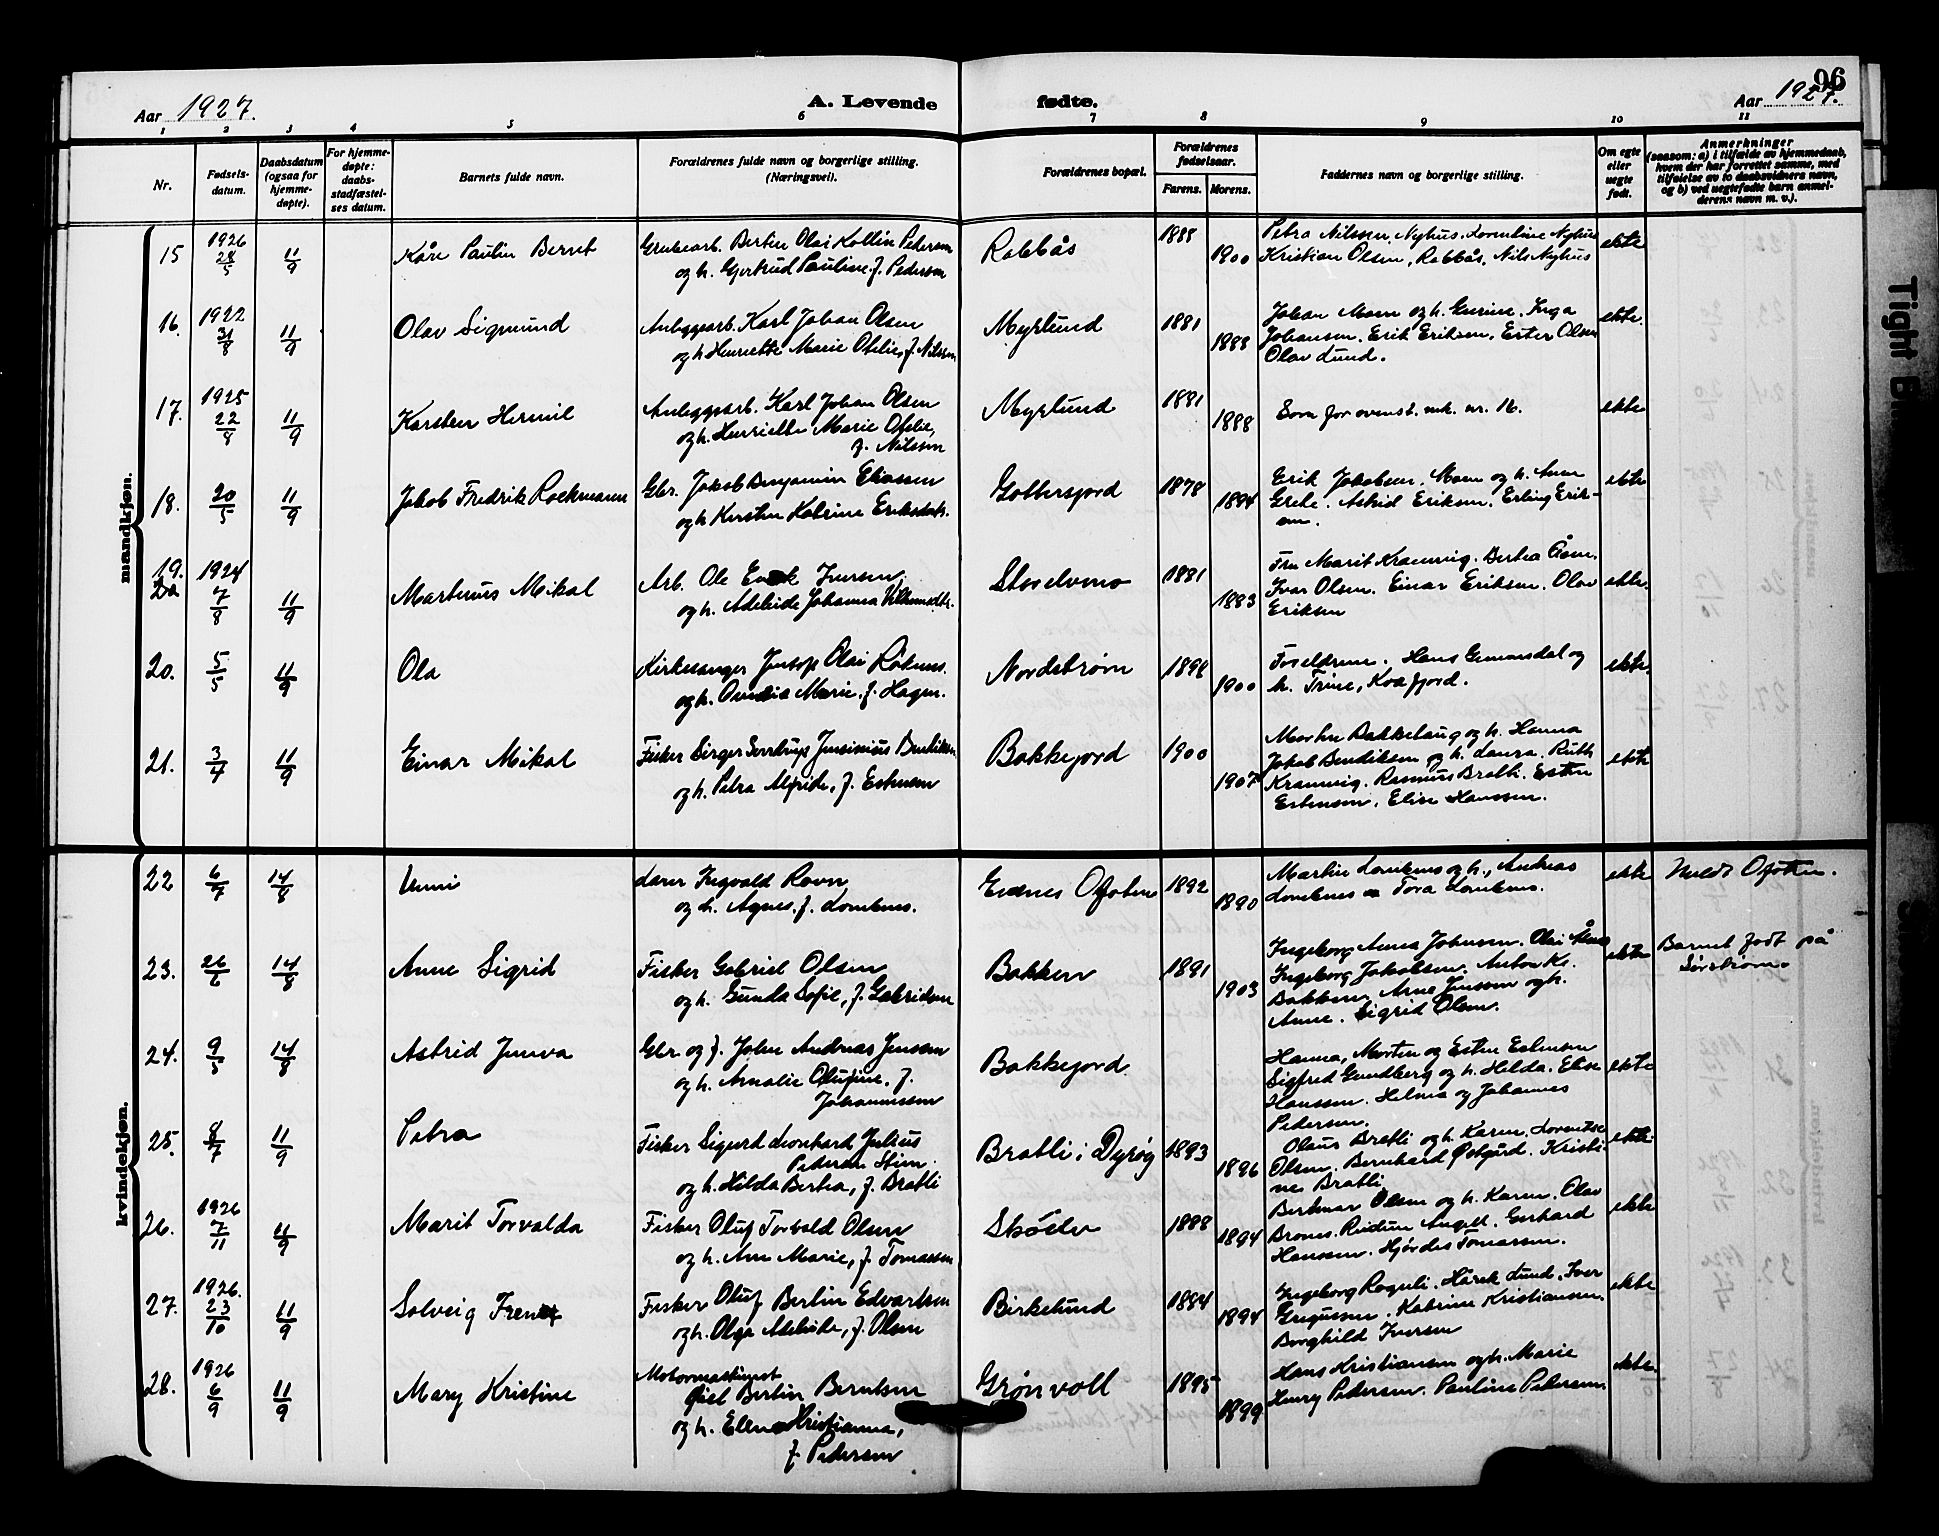 96
Aar 1927.
A. Levende
fødte.
Aar 1927.
1 2 3 4 5 6 7 8 9 10 11
Nr.
Fødsels-
datum.
Daabsdatum
(ogsaa for
hjemme-
døpte).
For hjemme-
døpte:
daabs-
stadfæstel-
ses datum.
Barnets fulde navn.
Forældrenes fulde navn og borgerlige stilling.
(Næringsvei).
Forældrenes bopæl.
Forældrenes
fødselsaar.
Farens. Morens.
Faddernes navn og borgerlige stilling.
Om egte
eller
uegte
født.
Anmerkninger
(saasom: a) i tilfælde av hjemmedaab,
hvem der har forrettet samme, med
tilføielse av to daabsvidners navn,
og b) ved uegtefødte barn anmel-
derens navn m. v.).
mandkjøn.
15 1926 28/5 11/9 Kåre Paulin Bernt
Grubearb. Bertin Olai Kollin Pedersen
og h. Gjertrud Pauline f. Pedersen
Rabbås 1888 1900
Petra Nilssen, Nyhus. Lorentine Nyhus
Kristian Olsen, Rabbås. Nils Nyhus
ekte
16. 1922 31/8 11/9 Olav Sigmund
Anleggsarb. Karl Johan Olsen
og h. Henriette Marie Ofelie, f. Nilssen
Myrlund 1881 1888
Johan Moen og h. Gurine. Inga
Johansen. Erik Eriksen. Ester Olsen
Olav Lund.
ekte.
17. 1925 22/8 11/9 Karsten Hermil
Anleggsarb. Karl Johan Olsen
og h. Henriette Marie Ofelie,
f. Nilssen
Myrlund 1881 1888
Som for ovenst. mk. nr. 16.
ekte
18. 20/5 11/9 Jakob Fredrik Rockmann
Gbr. Jakob Benjamin Eliassen
og h. Kirsten Katrine Eriksdatr.
Gottersjord 1878 1884
Erik Jakobsen. Moen og h. Anne
Grete. Astrid Eriksen. Erling Erik-
sen.
ekte
19. 20 1924 7/8 11/9 Martinus Mikal
Arb. Ole Enok Iversen
og h. Adelaide Johanna Vilhemsdtr.
Storelvmo 1881 1883
Fru Marit Kramvig. Bertea Åsen.
Ivar Olsen. Einar Eriksen. Olav
Eriksen
ekte.
20. 5/5 11/9 Ola
Kirkesanger Jentof Olai Röknes.
og h. Omdia Marie. f. Hagen.
Nordstrøm 1898 1900
Foreldrene. Hans Grinansdal og
h. Trine, Kvafjord.
ekte.
21. 3/4 11/9 Einar Mikal
Fisker Birger Sverdrup Jensinius Bendiksen
og h. Petra Alfride, f. Estensen
Bakkejord 1900 1907
Morten Bakkehaug og h. Hanna
Jakob Bendiksen og h. Laura. Ruth
Kramvig. Rasmus Bratli. Esten
Estensen, Elise Hanssen.
ekte
kvindekjøn.
22 6/7 14/8 Unni
Lærer Ingvald Ravn
og h. Agnes. f. Lorentsens.
Evenes Ofoten 1892 1890
Martin Lorentsens og h., Andreas
Lorentsens Tora Lorentsens.
ekte
Meldt Ofoten.
23. 26/6 14/8 Anne Sigrid
Fisker Gabriel Olsen
og h. Gunda Sofie, f. Gabrielsen
Bakken 1891 1903
Ingeborg Anna Johnsen. Olai Åsnes
Ingeborg Jakobsen. Anton K.
Bakken. Arne Jenssen og h.
Anne. Sigrid Olsen.
ekte
Barnet født på
Sørstrøm.
24. 9/5 14/8 Astrid Junva
Gbr. og f. John Andreas Jenssen
og h. Amalie Olufine. f.
Johannessen
Bakkejord
Hanna, Morten og Esten Estensen
Sigfred Gundberg og h. Hilda. Elise
Hanssen. Helma og Johannes
Pedersen.
ekte
25. 8/7 11/9 Petra
Fisker Sigurd Leonhard Julius
Pedersen Stien
og h. Hilda Bertea, f. Bratli
Bratli i Dyrøy 1893 1896
Olaus Bratli og h. Karen. Lorentse
Olsen. Bernhard Østgård. Kristi-
ne Bratli
ekte.
26. 1926 7/11 11/9 Marit Torvalda
Fisker Oluf Torvald Olsen
og h. Ane Marie, f. Tomassen
Skøelv 1888 1894
Berkmar Olsen og h. Karen. Olav
Brones. Reidun Angell. Gerhard
Hanssen. Hjørdis Tomassen.
ekte
27. 1926. 23/10 11/9 Solveig Irene
Fisker Oluf Berlin Edvartsen
og h. Olga Adelaide, f. Olsen
Birkelund 1884 1894
Ingeborg Rognli. Hårek Lund. Iver
Gregussen. Katrine Kristiansen.
Borghild Iversen
ekte
28. 1926 6/9 11/9 Mary Kristine
Motormaskinist
Eliel Bertin Berntsen
og h. Elena Kristianna,
f. Pedersen
Grønvoll 1895 1899
Hans Kristiansen og h. Marie
Henry Pedersen. Pauline Pedersen.
ekte.
Tight B